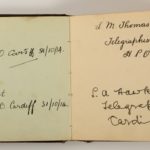 O. Cardiff 31/10/14.
O. Cardiff 31/10/14.
S. M Thomas
Telegraphis
H P O
L. A. Hawk
Telegra
Cardi